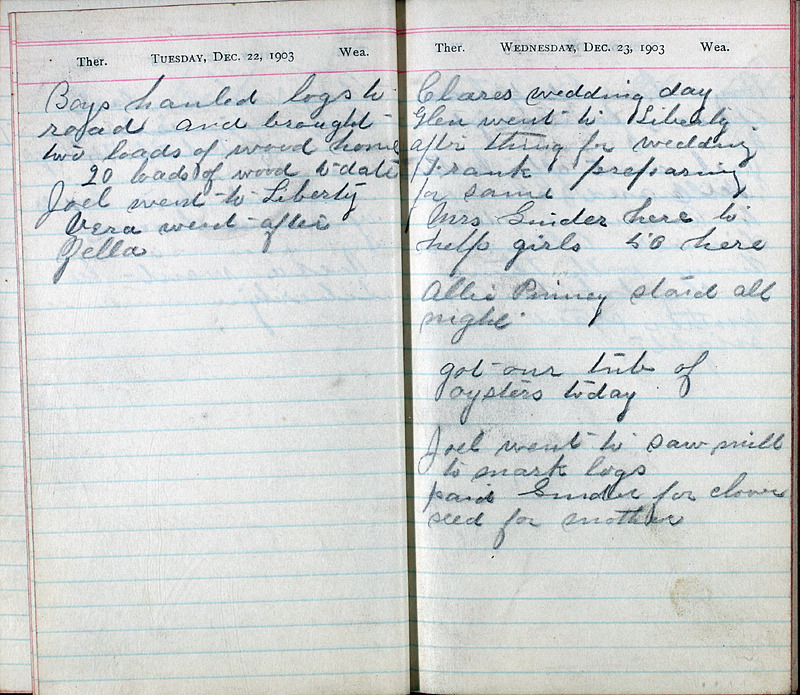 Ther. TUESDAY, DEC. 22, 1903 Wea.
Boys hauled logs to
road and brought
two loads of wood home
20 loads of wood to date
Joel went to Liberty
Vera went after
Zella
Ther. WEDNESDAY, DEC. 23, 1903 Wea.
Clares wedding day
Glen went to Liberty
after thing for wedding
Frank preparing
for same
Mrs Snider here to
help girls 50 here
Allie Pinney staid all
night
got our tub of
oysters today
Joel went to saw mill
to mark logs
paid Snider for clover
seed for mother